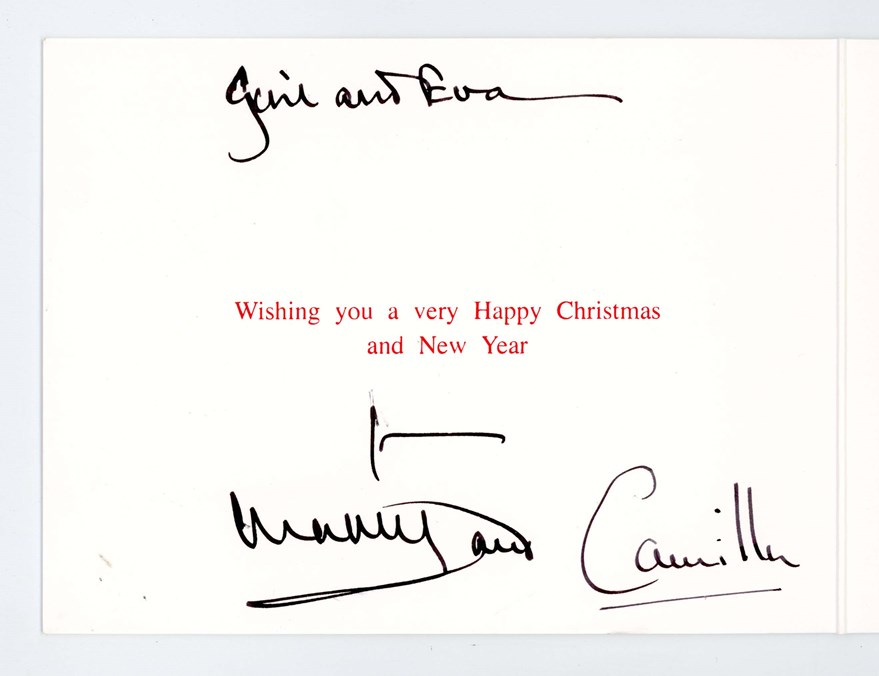 Gail and Eva
Wishing you a very Happy Christmas
and New Year
and Camilla